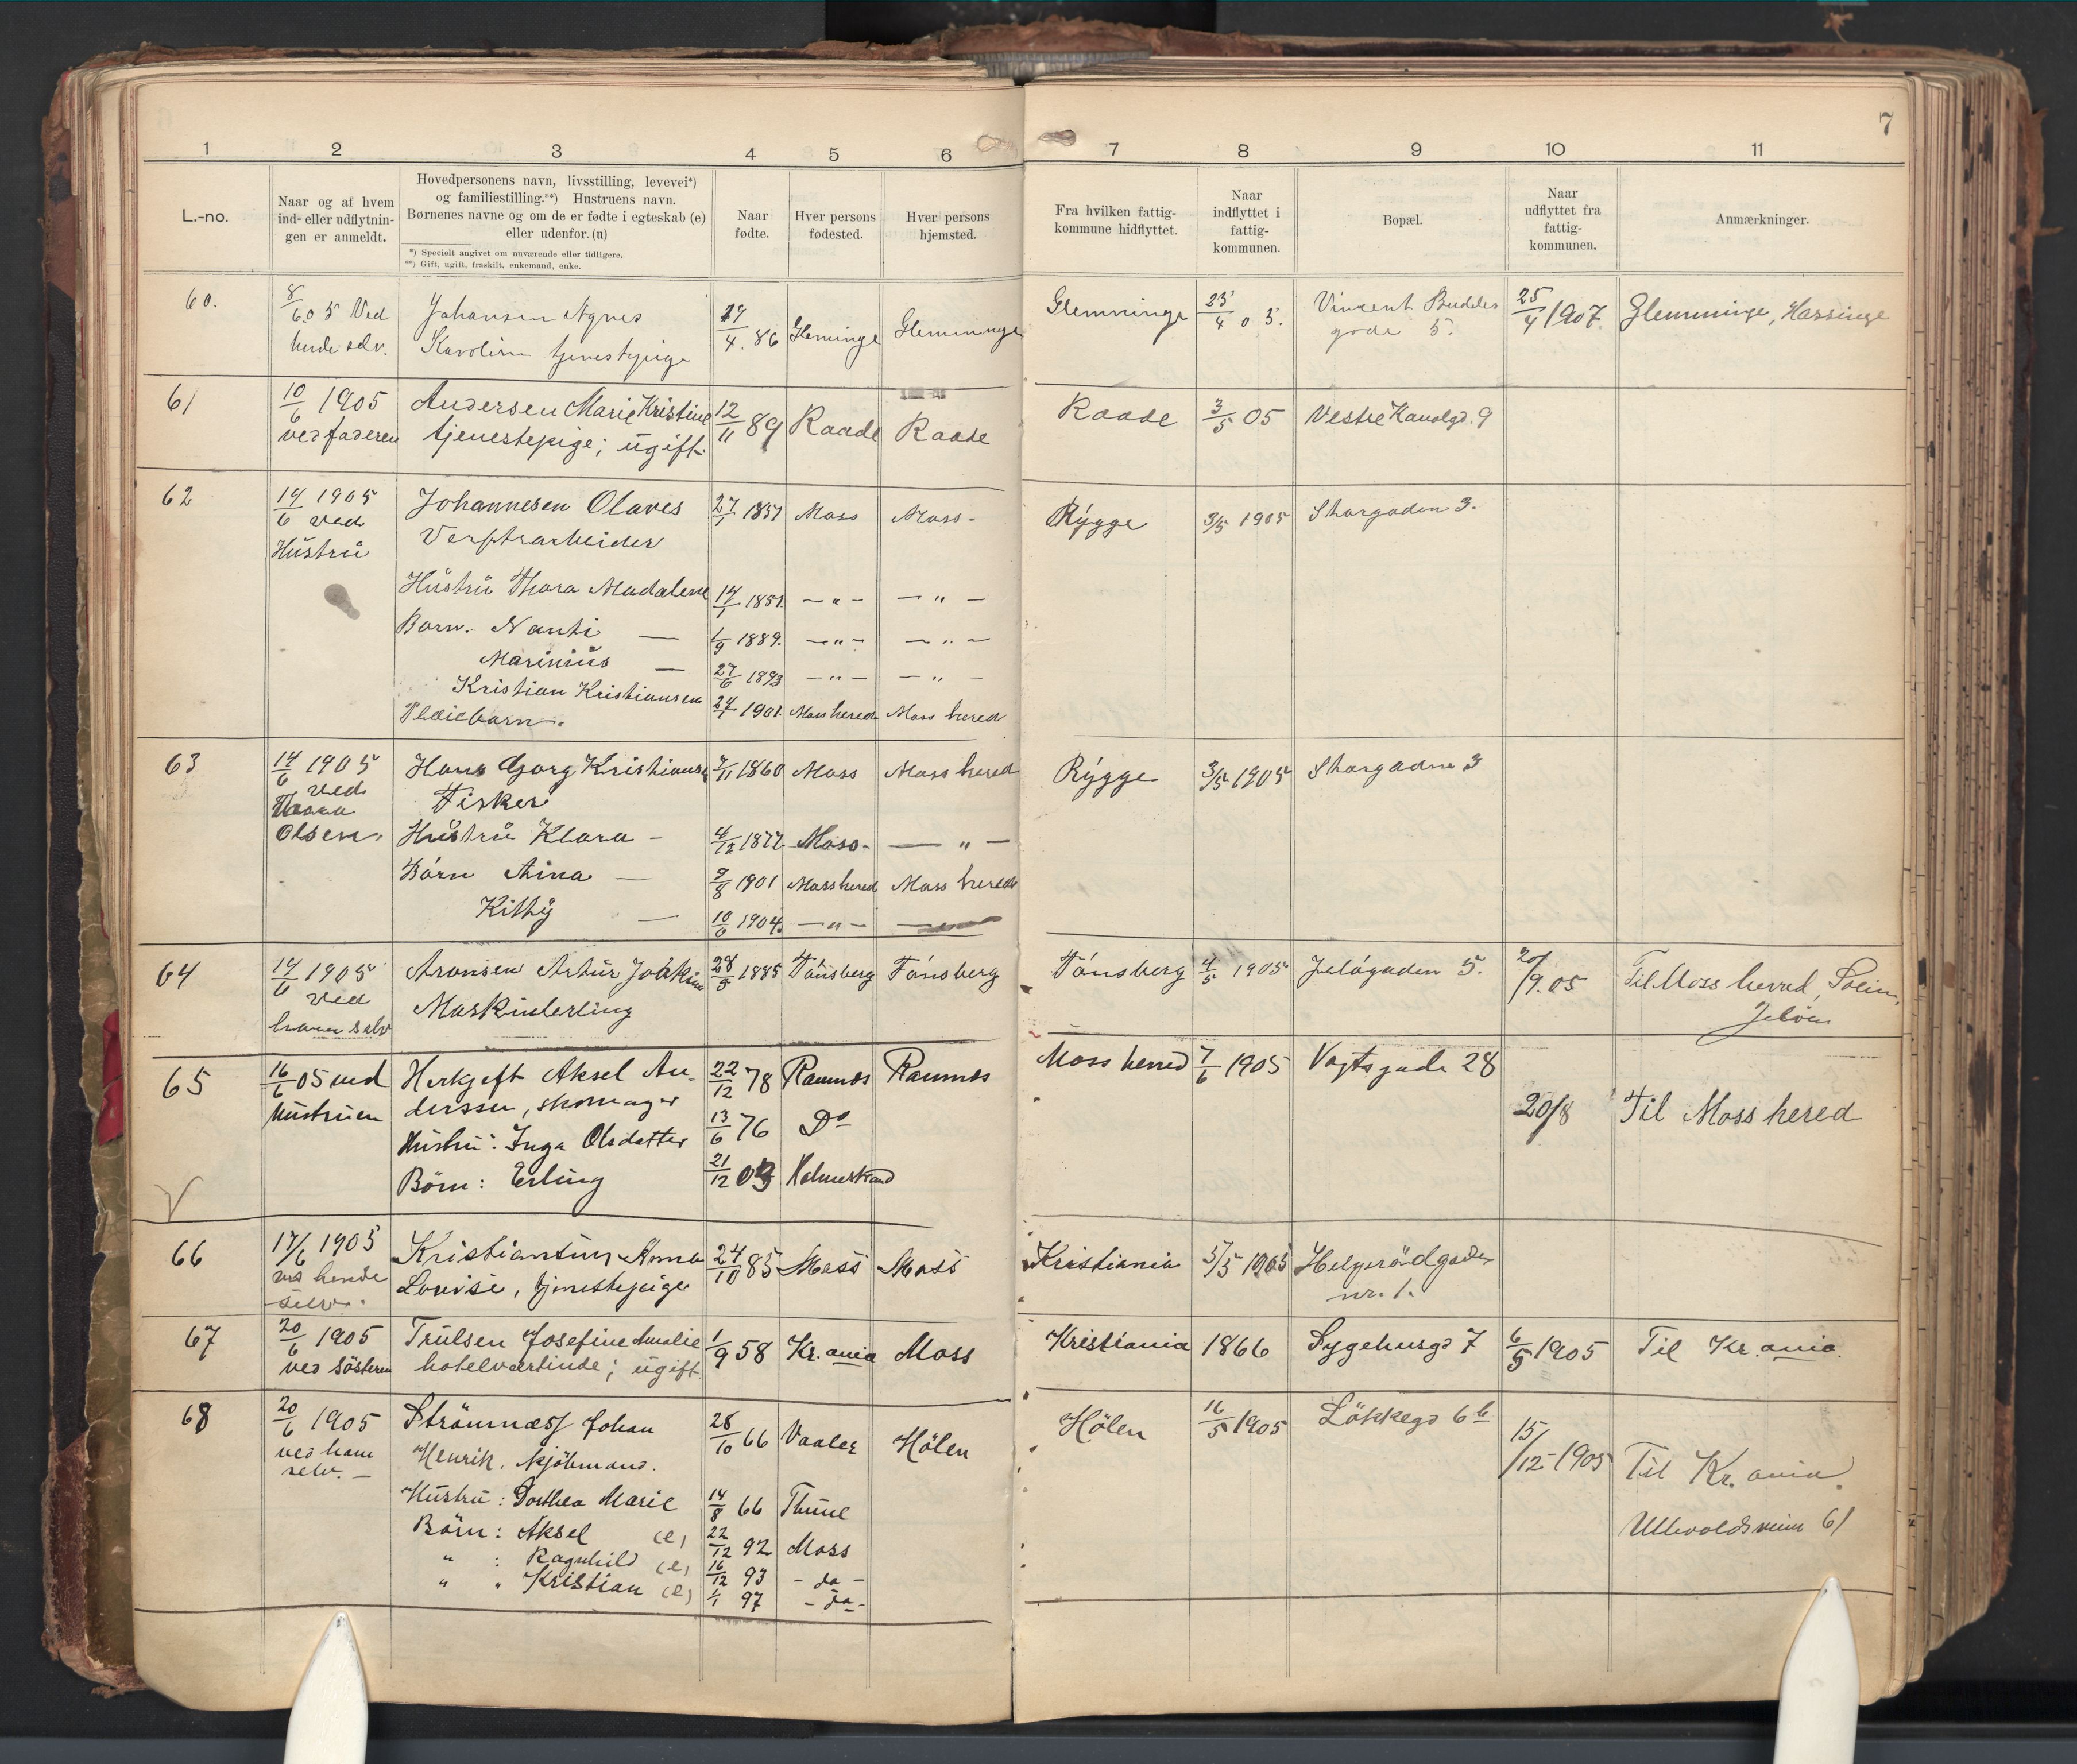 7
1 2 3 4 5 6 7 8 9 10 11
L.-no.
Naar og af hvem
ind- eller udflytnin-
gen er anmeldt.
Hovedpersonens navn, livsstilling, levevei*)
og familiestilling.**) Hustruens navn.
Børnenes navne og om de er fødte i egteskab (e)
eller udenfor. (u)
*) Specielt angivet om nuværende eller tidligere.
**) Gift, ugift, fraskilt, enkemand, enke.
Naar
fødte.
Hver persons
fødested.
Hver persons
hjemsted.
Fra hvilken fattig-
kommune hidflyttet.
Naar
indflyttet i
fattig-
kommunen.
Bopæl.
Naar
udflyttet fra
fattig-
kommunen.
Anmærkninger.
60. 8/6 05 Ved Johansen Agnes 29/4. 86 Gleminge Glemminge Glemminge 25/4 05. Vincent Buddes 25/4 1907. Glemminge, Hassinge
hende selv. Karoline tjenestepige gade 5.
61 10/6 1905 Andersen Marie Kristine 12/11 89 Raade Raade Raade 3/5 05 Vestre Kanalgd. 9
ved faderen tjenestepige; ugift.
62 14/6 1905 Johannesen Olaves 27/1 1857 Moss Moss- Rygge 3/5 1905 Storgaden 3.
ved Verftsarbeider
Hustru
Hustru Thora Madalene 14/1 1857. — " — — " —
Barn. Nanti — 1/9 1889. — " — — " —
Marinius — 27/6 1893 — " — — " —
Kristian Kristiansen 24/1 1901. Moss hered Moss hered
Pleiebarn.
63 14/6 1905 Hans Georg Kristiansen 7/11 1860 Moss Moss hered Rygge 3/5 1905 Storgaden 3
ved Fisker
Thora
Olsen. Hustru Klara — 4/12 1877 Moss- — " —
Børn Aina — 9/8 1901 Moss hered Moss hered
Kitty — 10/6 1904. — " —
64 14/6 1905 Aronsen Artur Joakim 28/5 1885 Tønsberg Tønsberg Tønsberg 4/5 1905 Jeløgaden 5. 20/9.05 Til Moss herred, Solin,
ved Maskinlerling Jeløen
ham selv
65 16/6 05 ved Herkjeft Aksel An- 22/12 78 Ramnes Ramnes Moss herred 7/6 1905 Vogtsgade 28
hustruen derssen, skomager 20/8 Til Moss hered
Hustru: Inga Olsdatter 13/6 76 Do
Børn: Erling 21/12 03 Holmestrand
V
66 17/6 1905 Kristiansen Anna 24/10 85 Moss Moss Kristiania 5/5 1905 Helgerødgaden
ved hende Lovise, tjenestepige nr. 1.
selv.
67 20/6 1905 Trulsen Josefine Amalie 1/9 58 Kr.ania Moss Kristiania 1866 Sygehusgd 7 6/5 1905 Til Kr.ania.
ved søsteren hotelværtinde; ugift.
68 20/6 1905 Strømnæss Johan 28/10 66 Vaaler Hølen Hølen 16/5 1905 Løkkegd 6 b 15/12 1905 Til Kr.ania.
ved ham Henrik. kjøbmand. Ullevoldsveien 61
selv. —
Hustru: Dorthea Marie 14/8 66 Thune
Børn: Aksel (e) 22/12 92 Moss
" : Ragnhild (e) 16/12 93 - do -
" " Kristian (e) 1/1 97 - do -